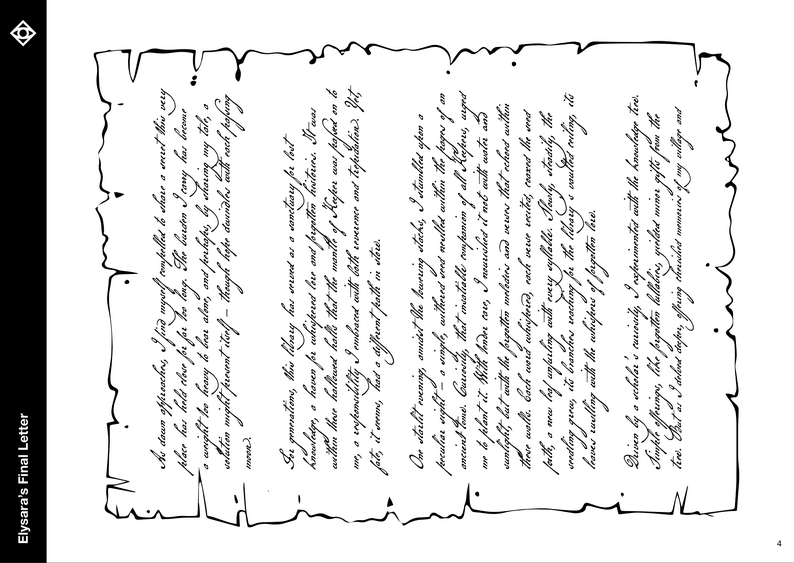 Elysara's Final Letter
As dawn approaches, I find myself compelled to share a secret this very
place has held close for far too long. The burden I carry has become
a weight too heavy to bear alone, and perhaps, by sharing my tale, a
solution might present itself – though hope dwindles with each passing
moment.
For generations, this library has served as a sanctuary for lost
knowledge, a haven for whispered lore and forgotten histories. It was
within these hallowed halls that the mantle of Keeper was passed on to
me, a responsibility I embraced with both reverence and trepidation. Yet,
fate, it seems, had a different path in store.
One starlit evening, amidst the towering stacks, I stumbled upon a
peculiar sight – a single, withered seed nestled within the pages of an
ancient tome. Curiosity, that insatiable companion of all Keepers, urged
me to plant it. With tender care, I nourished it not with water and
sunlight, but with the forgotten melodies and verses that echoed within
these walls. Each word whispered, each verse recited, coaxed the seed
forth, a new leaf unfurling with every syllable. Slowly, steadily, the
seedling grew, its branches reaching for the library's vaulted ceiling, its
leaves rustling with the whispers of forgotten lore.
Driven by a scholar's curiosity, I experimented with the knowledge tree.
Simple offerings, like forgotten lullabies, yielded minor gifts from the
tree. But as I delved deeper, offering cherished memories of my village and
4